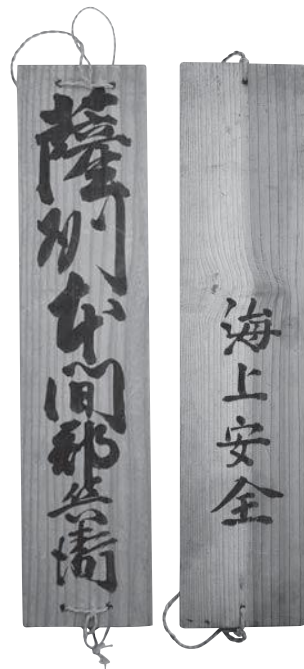 薩州本間郡兵衛
海上安全